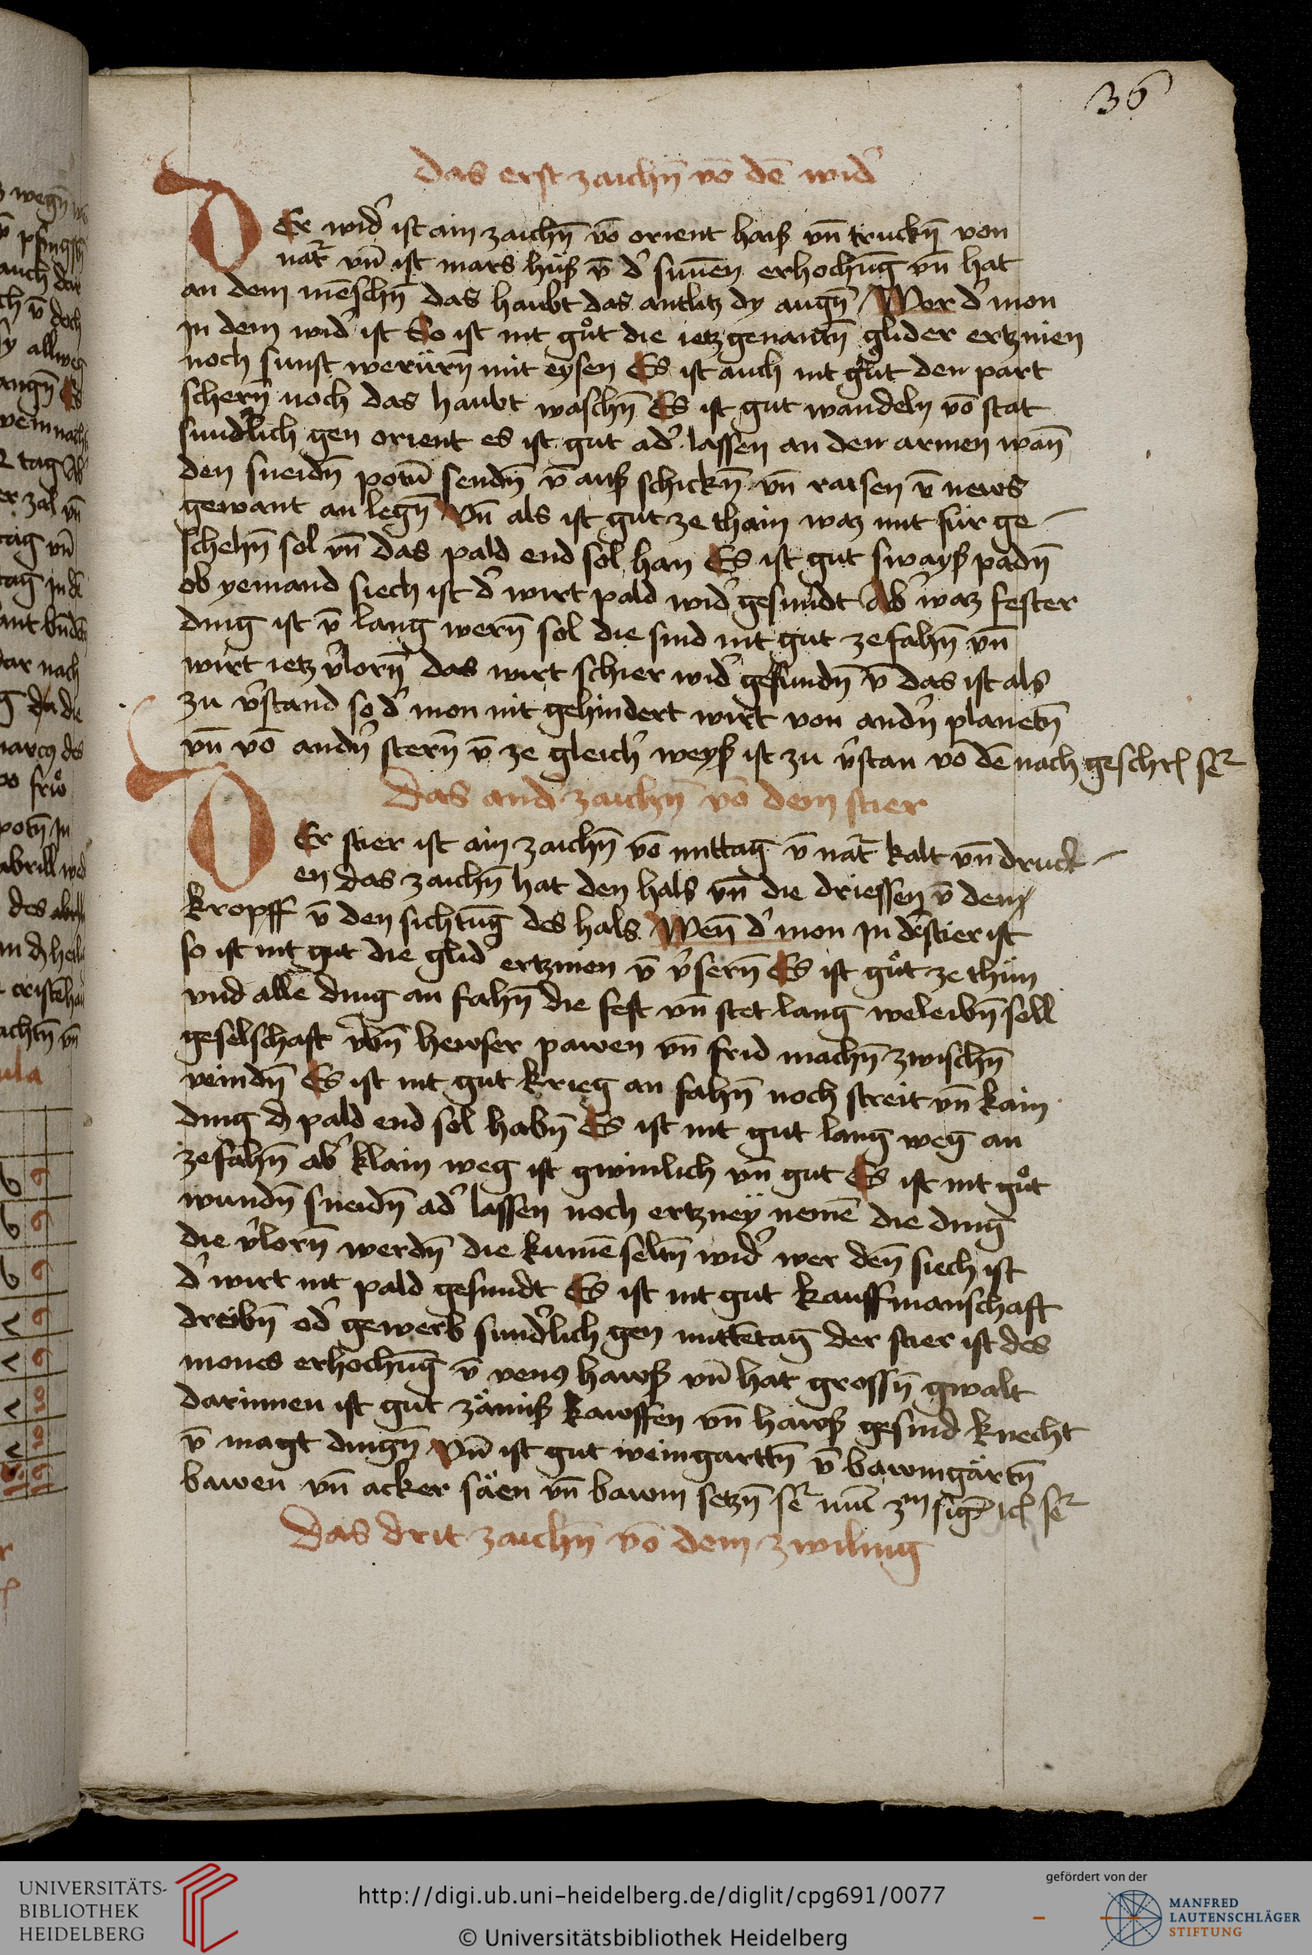 36
das erst zaichn̄ vō dē wid'
DEr wid' ist ain zaichn̄ vō orient haiß vn̄ truckn̄ von
nat' vn̄ ist mars huß v̄ d' sunnen erhochūg vn̄ hat
an dem mēschn̄ das haubt das antlitz dy augn̄ Wer d' mon
in dem wid' ist So ist nit gůt die ietz genantn̄ glider ertznien
noch sunst werürn̄ mit eysen Es ist auch nit gůt den part
schern̄ noch das haubt waschn̄ Es ist gut wandeln vō stat
sund'lich gen orient es ist gut ad' lassen an den armen wan̄
den sneidn̄ potn̄ sendn̄ v̄ auß schickn̄ vn̄ raisen v̄ news
gewant an legn̄ Vn̄ als ist gut ze thain waz nit für ge
schehn̄ sol vn̄ das pald end sol han Es ist gut swayß padn̄
ob yemand siech ist d' wirt pald wid' gesundt Ab' waz fester
ding ist v̄ lang wern̄ sol die sind nit gut ze fahn̄ vn̄
wirt ietz v'lorn̄ das wirt schier wid' gefundn̄ v̄ das ist als
zu v'stand so d' mon nit gehindert wirt von andn̄ planetn̄
vn̄ vō andn̄' stern̄ v̄ ze gleich' weyß ist zu v'stan vō dē nach geschr
das and' zaichn̄ vō dem stier
DEr stier ist ain zaichn̄ vō mittag v̄ nat' kalt vn̄ druck
en das zaichn̄ hat den hals vn̄ die driessen v̄ dem
kropff v̄ den sichtūg des hals Wen̄ d' mon in d' stier ist
so ist nit gut die glid' ertznen v̄ v'sern̄ Es ist gůt ze thün
vnd alle ding an fahn̄ die fest vn̄ stet lang weleibn̄ sell
geselschaft vbn̄ hewser pawen vn̄ frid machn̄ zwischn̄
veindn̄ Es ist nit gut krieg an fahn̄ noch streit vn̄ kain
ding d pald end sol habn̄ Es ist nit gut lang weg an
zefahn̄ ab' klain weg ist gwinlich vn̄ gut Es ist nit gůt
wundn̄ sneidn̄ ad' lassen noch ertzney nemē die ding
die v'lorn̄ werdn̄ die kumē seltn̄ wid' wer den̄ siech ist
d' wirt nit pald gesundt Es ist nit gut kauffmanschaft
dreibn̄ od' gewerb sund'lich gen mittētag der stier ist des
mones erhochūg v̄ ven9 hawß vn̄ hat grossn̄ gwalt
darinnen ist gut zämiß kawffen vn̄ hawß gesind knecht
v̄ magt dingn̄ Vn̄ ist gut weingarttn̄ v̄ bawmgärtn̄
bawen vn̄ acker säen vn̄ bawm setzn̄
das drit zaichn̄ vō dem zwiling
UNIVERSITÄTS-
BIBLIOTHEK
HEIDELBERG
http://digi.ub.uni-heidelberg.de/diglit/cpg691/0077
© Universitätsbibliothek Heidelberg
gefördert von der
MANFRED
LAUTENSCHLÄGER
STIFTUNG